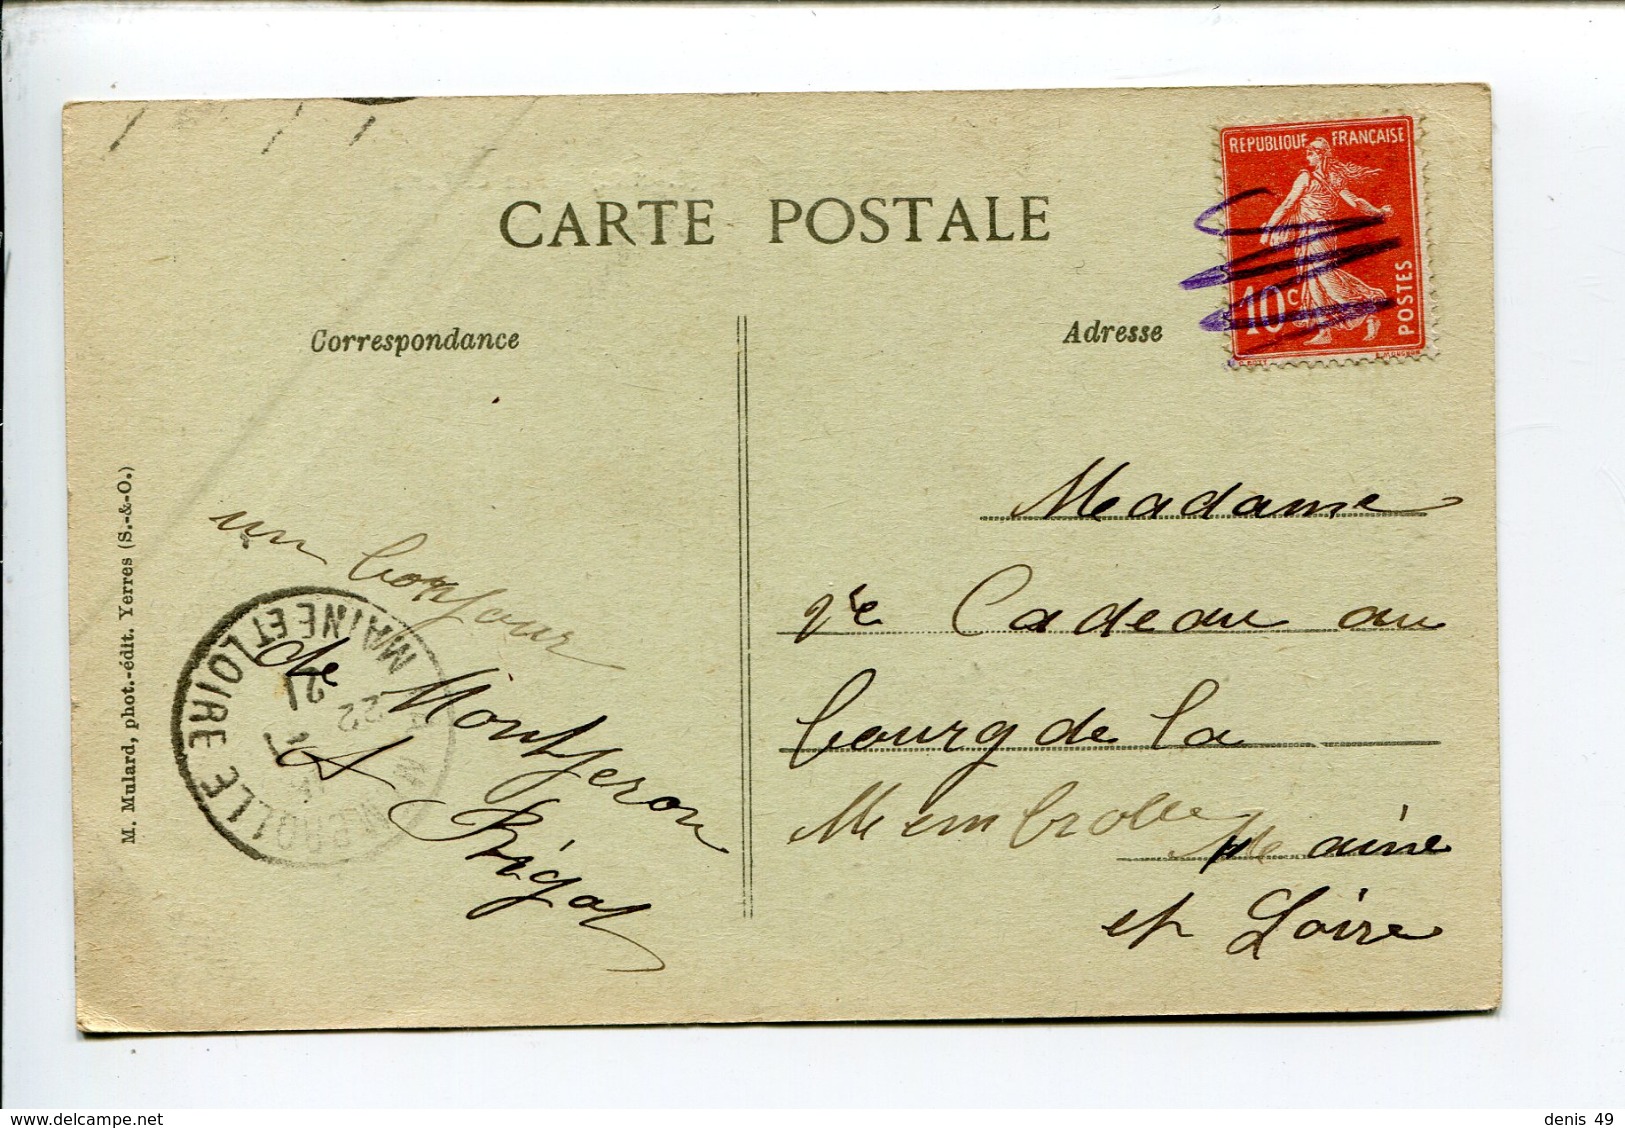 CARTE POSTALE
REPUBLIQUE FRANÇAISE
10c
POSTES
Correspondance
Adresse
M. Mulard, phot.-édit. Yerres (S.-&-O.)
un bonjour
de Montjeron
A Rigal
MAINE ET LOIRE
22
21
Madame
Vve Cadeau au
bourg de la
Membrolle Maine
et Loire
www.delcampe.net
denis 49